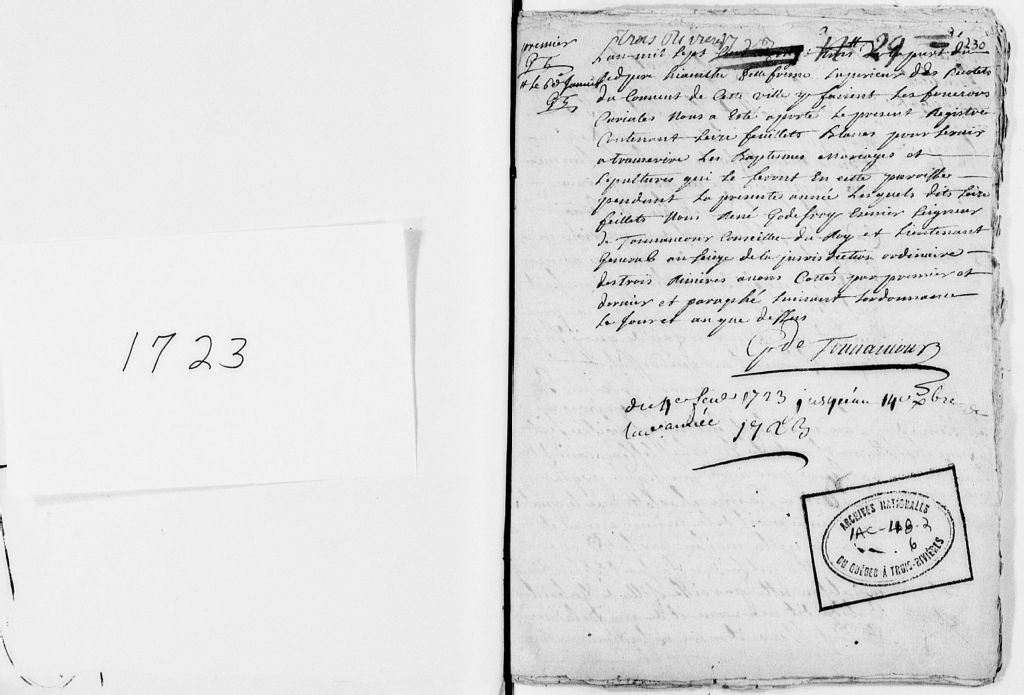 1723
trois Rivieres
29
230
premier
# le 6e Janvier
L'an mil sept de la part du
Redpere hiacinthe superieur des Recolets
du Couvent de Cette ville y faisant les fonctions
Curiales Nous a Esté aporté le present Registre
Contenant seize feuillets Blancs pour servir
a transcrire les Baptesmes mariages et
sepultures qui se feront En cette paroisse
pendant la presente année lesquels dits seize
feillets Nous René Godefroy Escuier seigneur
de Tonnancour Conseiller du Roy et Lieutenant
General au siege de la jurisdiction ordinaire
des trois Rivieres avons Cottés par premier et
dernier et paraphé suivant lordonnance
le jour et an que dessus
Gde Tonnancour
du 1723 jusqu'au 14e Xbre
année
1723
ARCHIVES NATIONALES
IAC-48-2
6
DU QUÉBEC À TROIS-RIVIÈRES